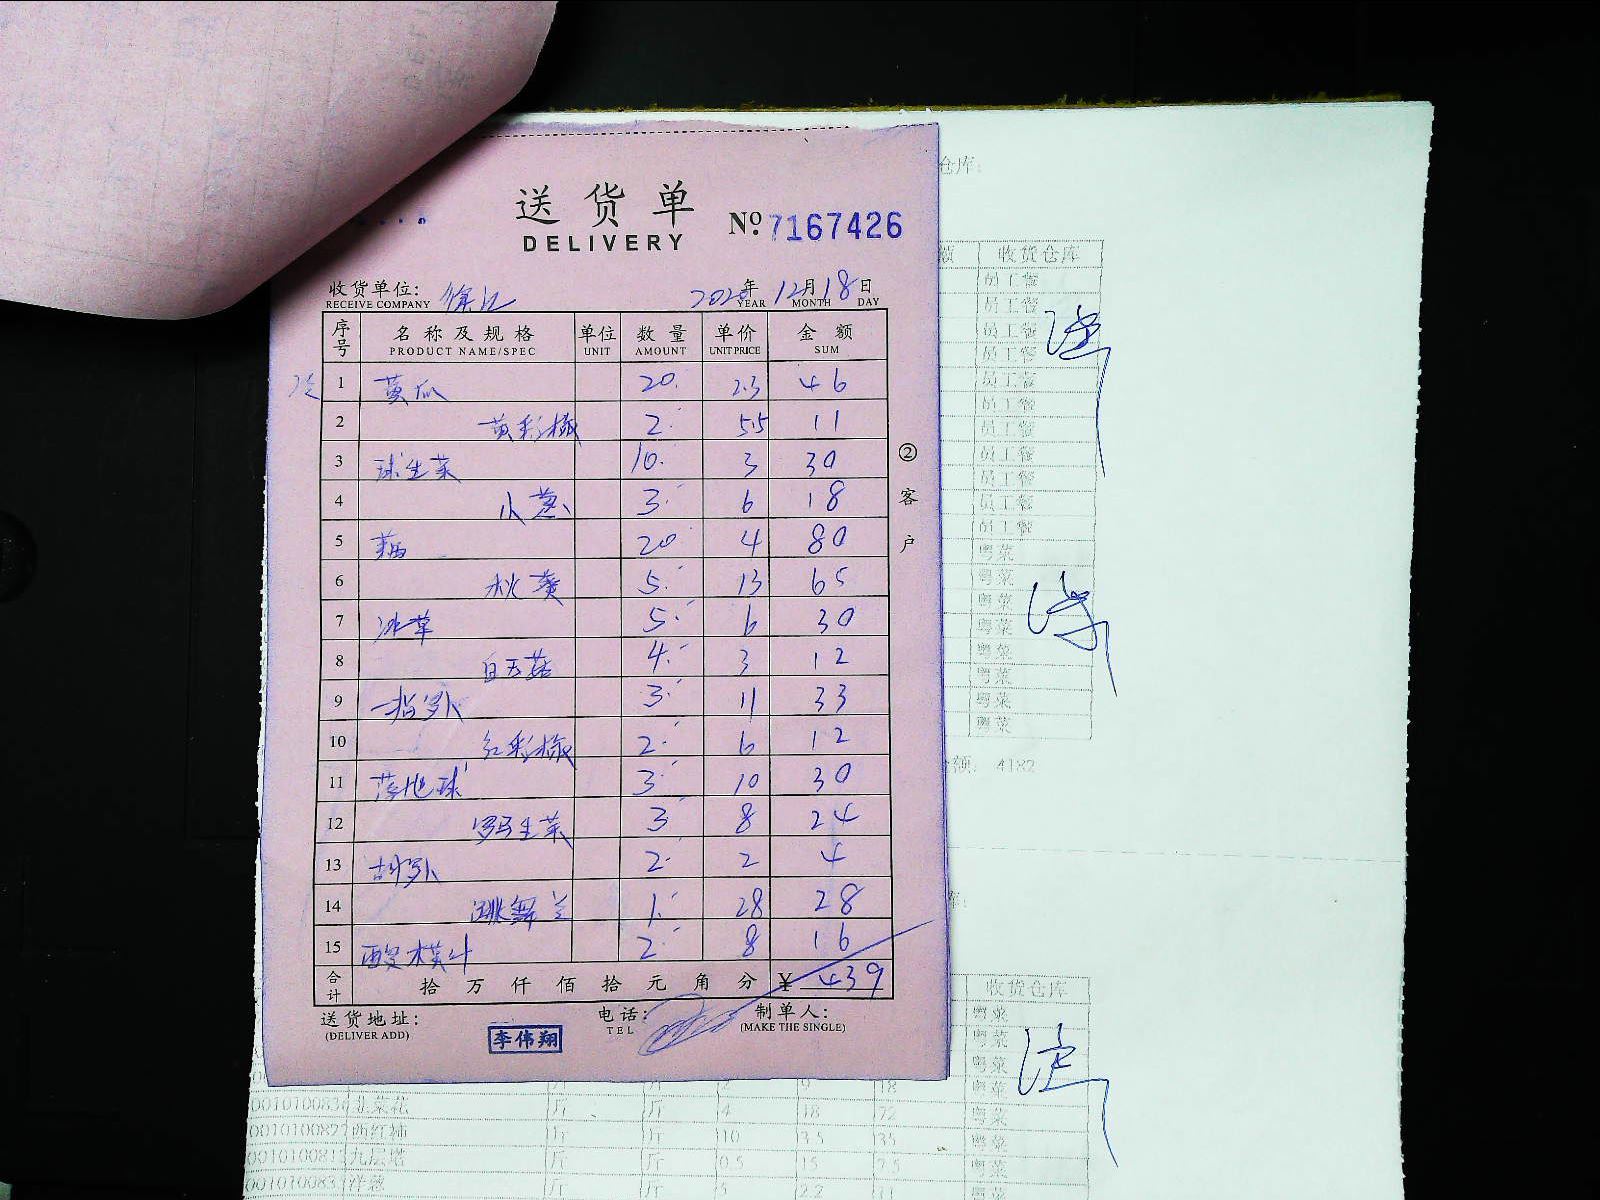 仓库:
送货单
DELIVERY
№ 7167426
收货单位: 徐汇 2020年 12月 18日
RECEIVE COMPANY YEAR MONTH DAY
序号 名称及规格 单位 数量 单价 金额
PRODUCT NAME/SPEC UNIT AMOUNT UNIT PRICE SUM
1 黄瓜 20 2.3 46
2 黄彩椒 2 5.5 11
3 球生菜 10 3 30
4 小葱 3 6 18
5 藕 20 4 80
6 秋葵 5 13 65
7 冰草 5 6 30
8 白玉菇 4 3 12
9 指萝卜 3 11 33
10 红彩椒 2 6 12
11 落地球 3 10 30
12 罗马生菜 3 8 24
13 胡萝卜 2 2 4
14 跳舞兰 1 28 28
15 酸模叶 2 8 16
合计 拾 万 仟 佰 拾 元 角 分 ¥ 439
送货地址: 电话: 制单人:
(DELIVER ADD) TEL (MAKE THE SINGLE)
李伟翔
②客户
额 收货仓库
员工餐
员工餐
员工餐
员工餐
员工餐
员工餐
员工餐
员工餐
员工餐
员工餐
员工餐
粤菜
粤菜
粤菜
粤菜
粤菜
粤菜
粤菜
粤菜
额: 4182
收货仓库
粤菜
粤菜
粤菜
粤菜 18
韭菜花 斤 斤 4 18 72 粤菜
西红柿 斤 斤 10 3.5 35 粤菜
九层塔 斤 斤 0.5 15 7.5 粤菜
洋葱 斤 斤 5 2.2 11 粤菜